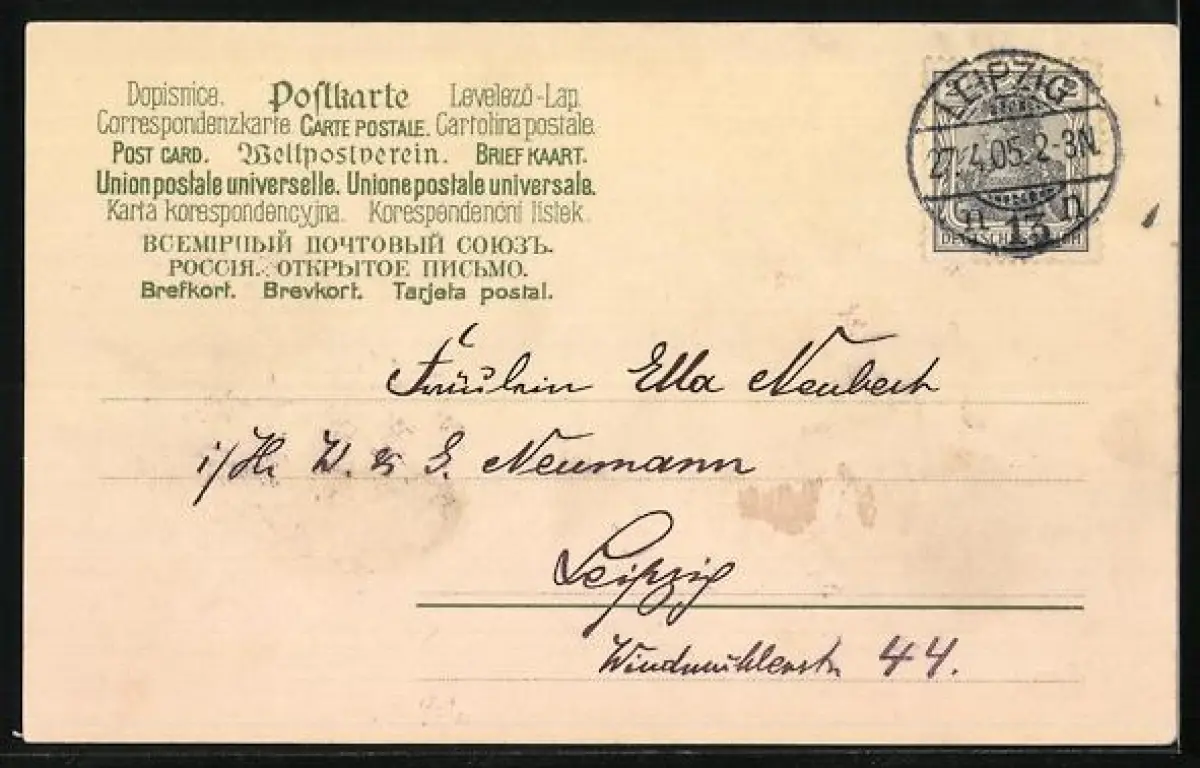 Dopisnice. Postkarte Levelező-Lap
Correspondenzkarte CARTE POSTALE. Cartolina postale
POST CARD. Weltpostverein. BRIEFKAART.
Union postale universelle. Unione postale universale.
Karta korespondencyjna. Korespondenční lístek.
ВСЕМІРНЫЙ ПОЧТОВЫЙ СОЮЗЪ.
РОССІЯ. ОТКРЫТОЕ ПИСЬМО.
Brefkort. Brevkort. Tarjeta postal.
LEIPZIG
27.4.05.2-3N.
n 13 n
DEUTSCHES REICH
Fräulein Ella Neubert
i/H. W. & S. Neumann
Leipzig
Windmühlenstr 44.